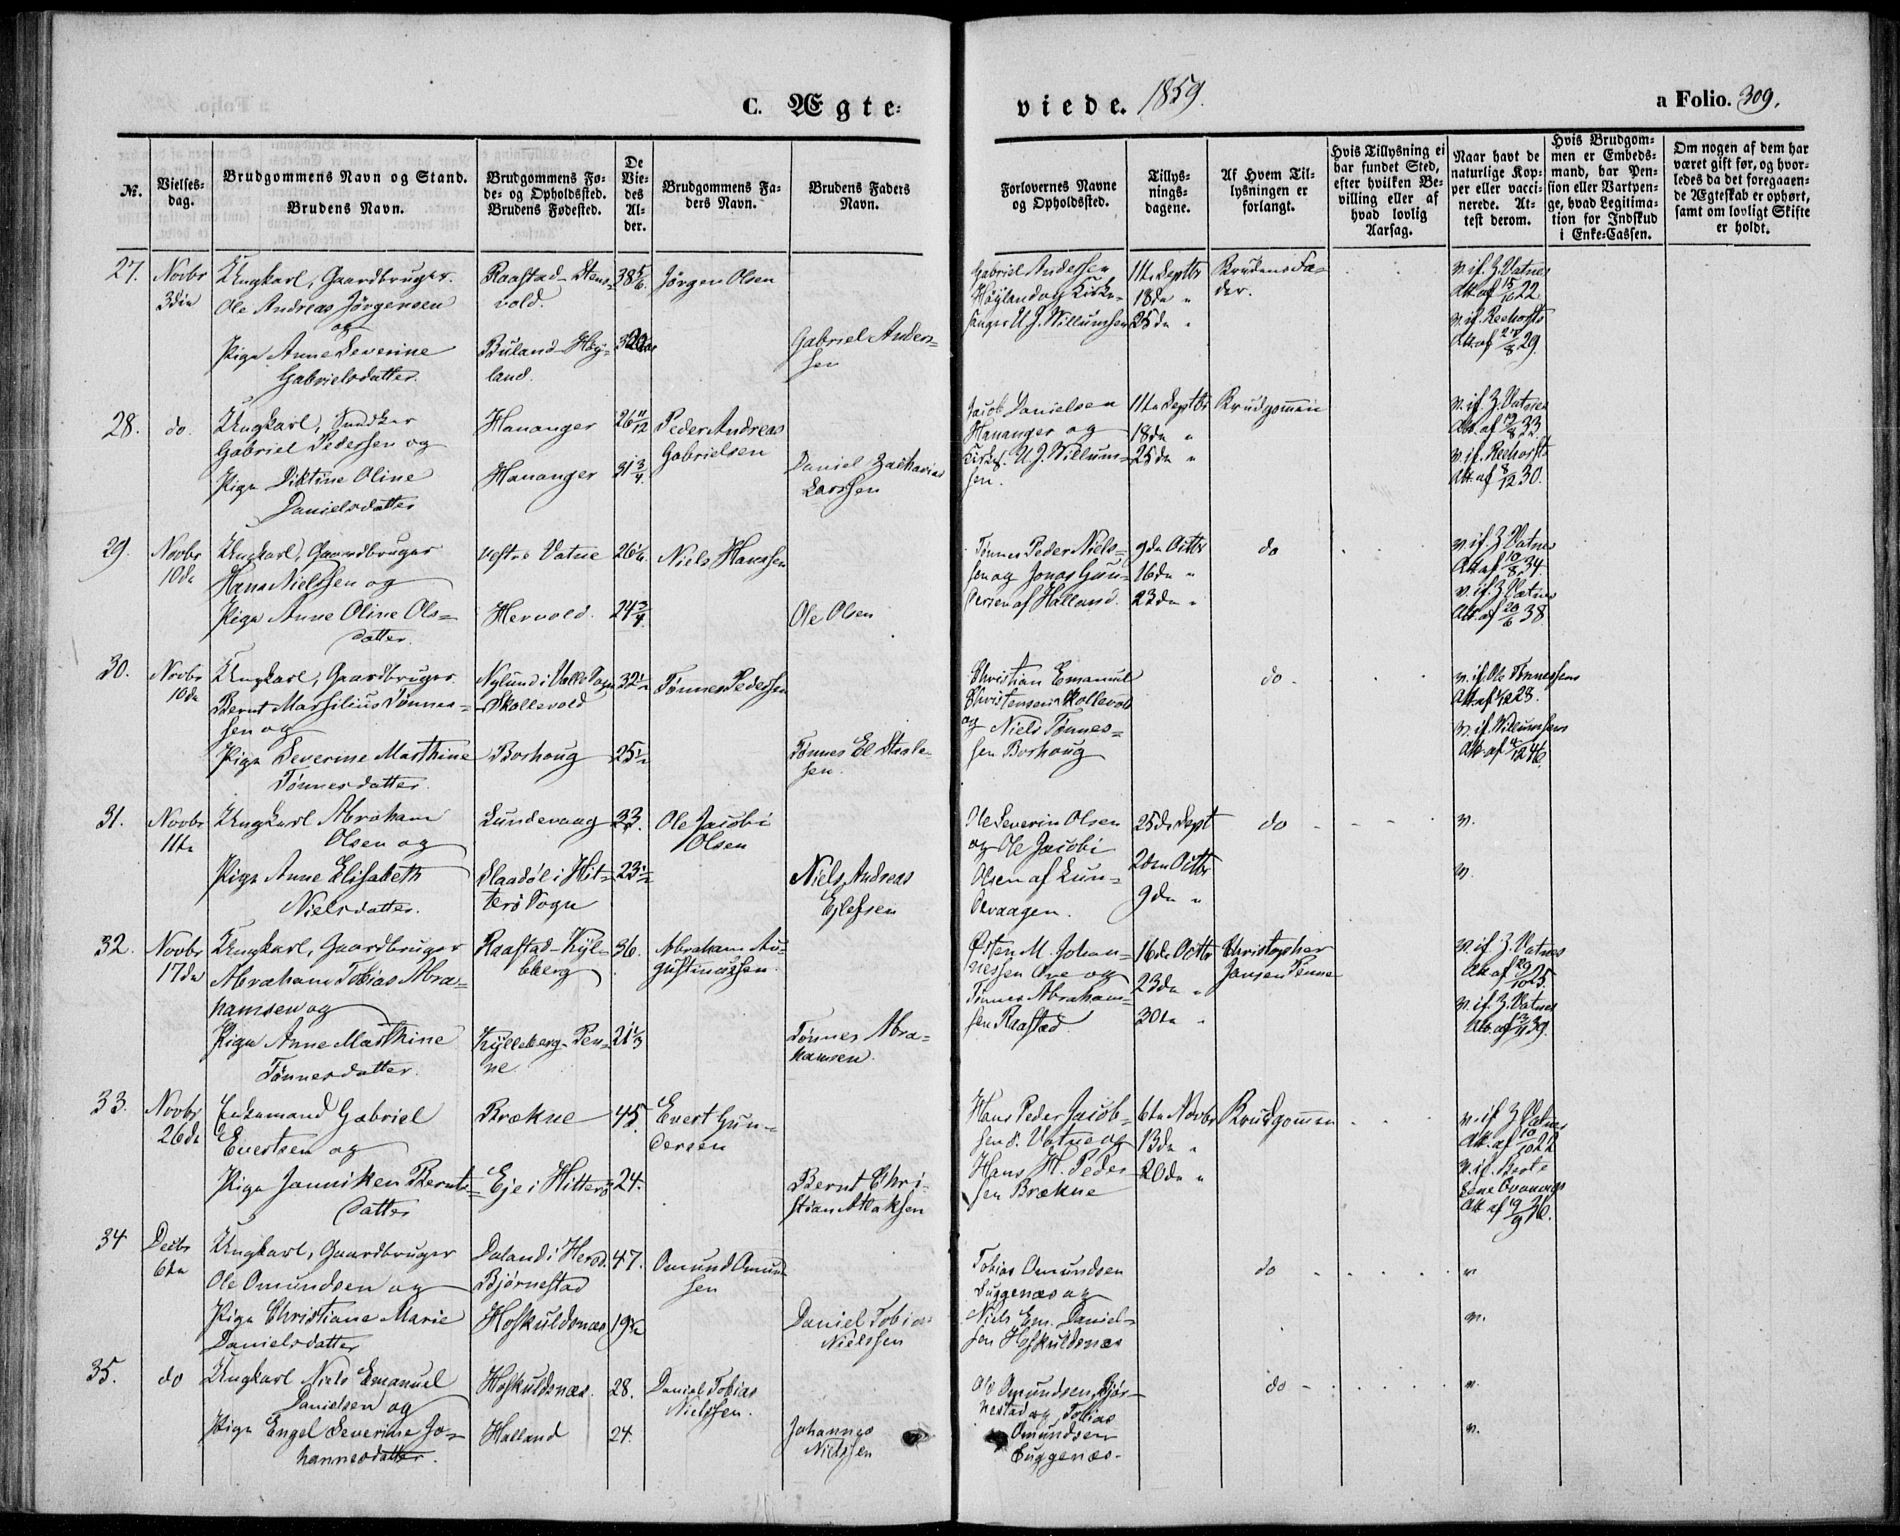 C. Ægte-
viede. 1859.
a Folio. 309.
No.
Vielses-
dag.
Brudgommens Navn og Stand.
Brudens Navn.
Brudgommens Fø-
de- og Opholdssted.
Brudens Fødested.
De
Vie-
des
Al-
der.
Brudgommens Fa-
ders Navn.
Brudens Faders
Navn.
Forlovernes Navne
og Opholdssted.
Tillys-
nings-
dagene.
Af Hvem Til-
lysningen er
forlangt.
Hvis Tillysning ei
har fundet Sted,
efter hvilken Be-
villing eller af
hvad lovlig
Aarsag.
Naar havt de
naturlige Kop-
per eller vacci-
nerede. At-
test derom.
Hvis Brudgom-
men er Embeds-
mand, har Pen-
sion eller Vartpen-
ge, hvad Legitima-
tion for Indskud
i Enke-Cassen.
Om nogen af dem har
været gift før, og hvor-
ledes da det foregaaen-
de Ægteskab er ophørt,
samt om lovligt Skifte
er holdt.
27.
Novbr
3die
Ungkarl, Gaardbruger
Ole Andreas Jörgensen
og
Pige Anne Severine
Gabrielsdatter.
Raastad-Stens-
vold.
Buland-Höy-
land.
38 5/6.
Jörgen Olsen
Gabriel Ander-
sen
Gabriel Andersen
Höyland og Kirke-
sanger U J. Willumsen
11te Septbr
18de "
25de "
Brudens Fa-
der.
v. if. Z. Vatnes
Att. af 15/10 22
v. if. Reehorsts
Att. af 27/8 29.
28.
do.
Ungkarl,
Gabriel Pedersen og
Pige Diktine Oline
Danielsdatter
Hananger
Hananger
26 11/12
31 3/4
Peder Andreas
Gabrielsen
Daniel Zacharias
Larssen
Jacob Danielsen
Hananger og
Kirkes. U J. Willum-
sen.
11te Septbr
18de "
25de "
Brudgommen
v. if. Z. Vatnes
Att. af 19/8 33
v. if. Reehorsts
Att. af 8/12 30.
29.
Novbr
10de
Ungkarl, Gaardbruger
Hans Nielssen og
Pige Anne Oline Ols-
datter.
vestre Vatne
Hervold.
26 1/6
24 3/4
Niels Hanssen
Ole Olsen
Tönnes Peder Niels-
sen og Jonas Gun-
dersen af Halland.
9de Octbr
16de "
23de "
do
v. if. Z. Vatnes
Att. af 10/8 34
v. if. Z. Vatnes
Att. af 20/6 38
30.
Novbr
10de
Ungkarl, Gaardbruger
Bernt Marsilius Tönnes-
sen og
Pige Severine Marthine
Tönnesdatter.
Nylund i Valle Sogn
Skollevold
Borhoug
32 1/2
25 1/2
Tönnes Pedersen
Tönnes El. Staale-
sen.
Christian Emanuel
Christensen Skollevold
og Niels Tönnes-
sen Borhoug
do
v. if. Ole Tönnessens
v. if. Willumsens
31.
Novbr
11te
Ungkarl Abraham
Olsen og
Pige Anne Elisabeth
Nielsdatter.
Lundevaag
Slaadöl i Hit-
terö Sogn
33.
23 1/2
Ole Jacobi
Olsen
Niels Andreas
Eilefsen
Ole Severin Olsen
og Ole Jacobi
Olsen af Lun-
devaagen.
25de Sept
2den Octbr
9de "
do
v.
v.
32.
Novbr
17de
Ungkarl, Gaardbruger
Abraham Tobias Abra-
hamsen og
Pige Anne Marthine
Tönnesdatter.
Raastad-Kyl-
leberg
Kylleberg-Pen-
ne
36.
21 1/3
Abraham Au-
gustinussen.
Tönnes Abra-
hamsen.
Östen M. Johan-
nessen Ore og
Tönnes Abraham-
sen Raastad
16de Octbr
23de "
30te "
Christopher
Jansen Penne
v. if. Z. Vatnes
Att. af 29/10 25.
v. if. Z. Vatnes
33.
Novbr
26de
Enkemand Gabriel
Evertsen og
Pige Janniken Bernts-
datter
Brækne
Eje i Hitterö
45.
24.
Evert Gun-
dersen
Bernt Chri-
stian Aslaksen
Hans Peder Jacob-
sen ö. Vatne og
Hans H. Peder-
sen Brækne
6te Novbr
13de "
20de "
Brudgommen
v. if. Z. Vatnes
Att. af 10/10 22
v. if. Berte
34
Decbr
6te
Ungkarl, Gaardbruger
Ole Omundsen og
Pige Christiane Marie
Danielsdatter
Daland i Herod.
Björnestad
Hoskuldsnæs
47.
19 1/2
Omund Omund-
sen
Daniel Tobias
Nielssen
Tobias Omundsen
Luggenæs og
Niels Em. Daniel-
sen Hoskuldsnæs
do
v
v.
35.
do
Ungkarl Niels Emanuel
Danielsen og
Pige Engel Severine Jo-
hannesdatter.
Hoskuldsnæs.
Halland
28.
24.
Daniel Tobias
Nielssen.
Johannes
Nielssen
Ole Omundsen Björ-
nestad og Tobias
Omundsen
Luggenæs.
do
v.
v.